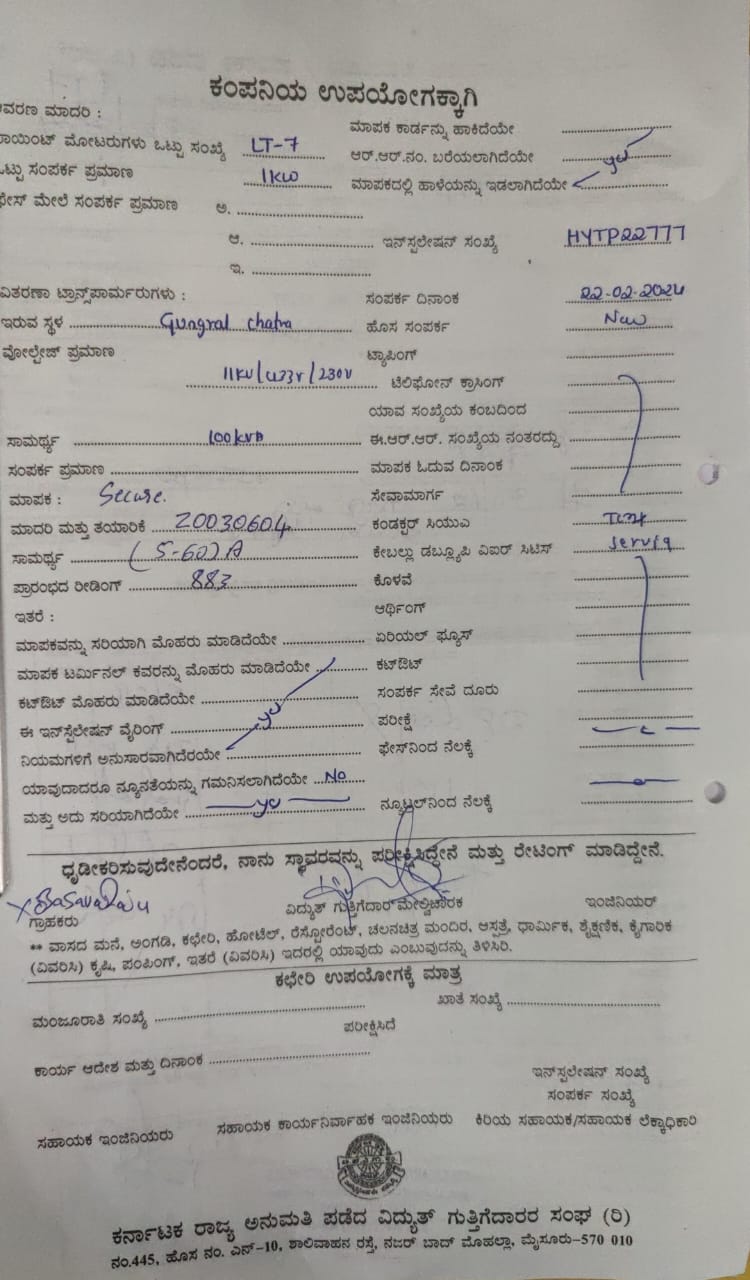 ಕಂಪನಿಯ ಉಪಯೋಗಕ್ಕಾಗಿ
ಆವರಣ ಮಾದರಿ :
ಮಾಪಕ ಕಾರ್ಡನ್ನು ಹಾಕಿದೆಯೇ
ಪಾಯಿಂಟ್ ಮೋಟರುಗಳು ಒಟ್ಟು ಸಂಖ್ಯೆ LT-7 ಆರ್.ಆರ್.ನಂ. ಬರೆಯಲಾಗಿದೆಯೇ
ಒಟ್ಟು ಸಂಪರ್ಕ ಪ್ರಮಾಣ 1KW ಮಾಪಕದಲ್ಲಿ ಹಾಳೆಯನ್ನು ಇಡಲಾಗಿದೆಯೇ
ಫೇಸ್ ಮೇಲೆ ಸಂಪರ್ಕ ಪ್ರಮಾಣ ಅ.
ಆ. ಇನ್‌ಸ್ಟಲೇಷನ್ ಸಂಖ್ಯೆ HYTP22777
ಇ.
ವಿತರಣಾ ಟ್ರಾನ್ಸ್‌ಪಾರ್ಮರುಗಳು : ಸಂಪರ್ಕ ದಿನಾಂಕ 22-02-2024
ಇರುವ ಸ್ಥಳ chatra ಹೊಸ ಸಂಪರ್ಕ New
ವೋಲ್ಟೇಜ್ ಪ್ರಮಾಣ ಟ್ಯಾಪಿಂಗ್
11KV/433V/230V ಟೆಲಿಫೋನ್ ಕ್ರಾಸಿಂಗ್
ಯಾವ ಸಂಖ್ಯೆಯ ಕಂಬದಿಂದ
ಸಾಮರ್ಥ್ಯ 100KVA ಈ.ಆರ್.ಆರ್. ಸಂಖ್ಯೆಯ ನಂತರದ್ದು
ಸಂಪರ್ಕ ಪ್ರಮಾಣ ಮಾಪಕ ಓದುವ ದಿನಾಂಕ
ಮಾಪಕ : Secure. ಸೇವಾಮಾರ್ಗ
ಮಾದರಿ ಮತ್ತು ತಯಾರಿಕೆ 20030604 ಕಂಡಕ್ಟರ್ ಸಿಯುಎ
ಸಾಮರ್ಥ್ಯ (5-60)A ಕೇಬಲ್ಲು ಡಬ್ಲ್ಯೂಪಿ ವಿಐರ್ ಸಿಟಿಸ್
ಪ್ರಾರಂಭದ ರೀಡಿಂಗ್ 883 ಕೊಳವೆ
ಇತರೆ : ಆರ್ಥಿಂಗ್
ಮಾಪಕವನ್ನು ಸರಿಯಾಗಿ ಮೊಹರು ಮಾಡಿದೆಯೇ ಏರಿಯಲ್ ಫ್ಯೂಸ್
ಮಾಪಕ ಟರ್ಮಿನಲ್ ಕವರನ್ನು ಮೊಹರು ಮಾಡಿದೆಯೇ ಕಟ್‌ಔಟ್
ಕಟ್‌ಔಟ್ ಮೊಹರು ಮಾಡಿದೆಯೇ ಸಂಪರ್ಕ ಸೇವೆ ದೂರು
ಈ ಇನ್‌ಸ್ಟಲೇಷನ್ ವೈರಿಂಗ್ ಪರೀಕ್ಷೆ
ನಿಯಮಗಳಿಗೆ ಅನುಸಾರವಾಗಿದೆರಯೇ ಫೇಸ್‌ನಿಂದ ನೆಲಕ್ಕೆ
ಯಾವುದಾದರೂ ನ್ಯೂನತೆಯನ್ನು ಗಮನಿಸಲಾಗಿದೆಯೇ No
ಮತ್ತು ಅದು ಸರಿಯಾಗಿದೆಯೇ ನ್ಯೂಟ್ರಲ್‌ನಿಂದ ನೆಲಕ್ಕೆ
ಧೃಡೀಕರಿಸುವುದೇನೆಂದರೆ, ನಾನು ಸ್ಥಾವರವನ್ನು ಪರೀಕ್ಷಿಸಿದ್ದೇನೆ ಮತ್ತು ರೇಟಿಂಗ್ ಮಾಡಿದ್ದೇನೆ.
ಗ್ರಾಹಕರು ವಿದ್ಯುತ್ ಗುತ್ತಿಗೆದಾರ್ ಮೇಲ್ವಿಚಾರಕ ಇಂಜಿನಿಯರ್
** ವಾಸದ ಮನೆ, ಅಂಗಡಿ, ಕಛೇರಿ, ಹೋಟೆಲ್, ರೆಸ್ಟೋರೆಂಟ್, ಚಲನಚಿತ್ರ ಮಂದಿರ, ಆಸ್ಪತ್ರೆ, ಧಾರ್ಮಿಕ, ಶೈಕ್ಷಣಿಕ, ಕೈಗಾರಿಕ
(ವಿವರಿಸಿ) ಕೃಷಿ, ಪಂಪಿಂಗ್, ಇತರೆ (ವಿವರಿಸಿ) ಇದರಲ್ಲಿ ಯಾವುದು ಎಂಬುವುದನ್ನು ತಿಳಿಸಿರಿ.
ಕಛೇರಿ ಉಪಯೋಗಕ್ಕೆ ಮಾತ್ರ
ಮಂಜೂರಾತಿ ಸಂಖ್ಯೆ ಖಾತೆ ಸಂಖ್ಯೆ
ಪರೀಕ್ಷಿಸಿದೆ
ಕಾರ್ಯ ಆದೇಶ ಮತ್ತು ದಿನಾಂಕ
ಇನ್‌ಸ್ಪಲೇಷನ್ ಸಂಖ್ಯೆ
ಸಂಪರ್ಕ ಸಂಖ್ಯೆ
ಸಹಾಯಕ ಇಂಜಿನಿಯರು ಸಹಾಯಕ ಕಾರ್ಯನಿರ್ವಾಹಕ ಇಂಜಿನಿಯರು ಕಿರಿಯ ಸಹಾಯಕ/ಸಹಾಯಕ ಲೆಕ್ಕಾಧಿಕಾರಿ
ಕರ್ನಾಟಕ ರಾಜ್ಯ ಅನುಮತಿ ಪಡೆದ ವಿದ್ಯುತ್ ಗುತ್ತಿಗೆದಾರರ ಸಂಘ (ರಿ)
ನಂ.445, ಹೊಸ ನಂ. ಎನ್-10, ಶಾಲಿವಾಹನ ರಸ್ತೆ, ನಜರ್ ಬಾದ್ ಮೊಹಲ್ಲಾ, ಮೈಸೂರು-570 010